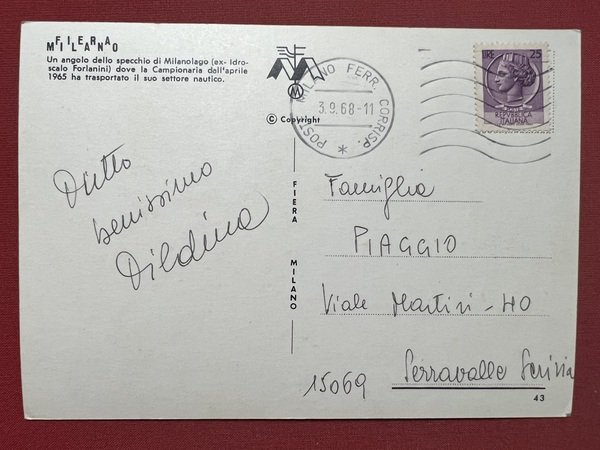 FIERA
MILANO
Un angolo dello specchio di Milanolago (ex- Idro-
scalo Forlanini) dove la Campionaria dall'aprile
1965 ha trasportato il suo settore nautico.
M
© Copyright
POSTE MILANO FERR. CORRISP.
3.9.68-11
*
25
POSTE
REPUBBLICA
ITALIANA
Dutto
benissimo
Dildina
FIERA MILANO
Famiglia
PIAGGIO
Viale Martiri - 40
15069 Serravalle Scrivia
43